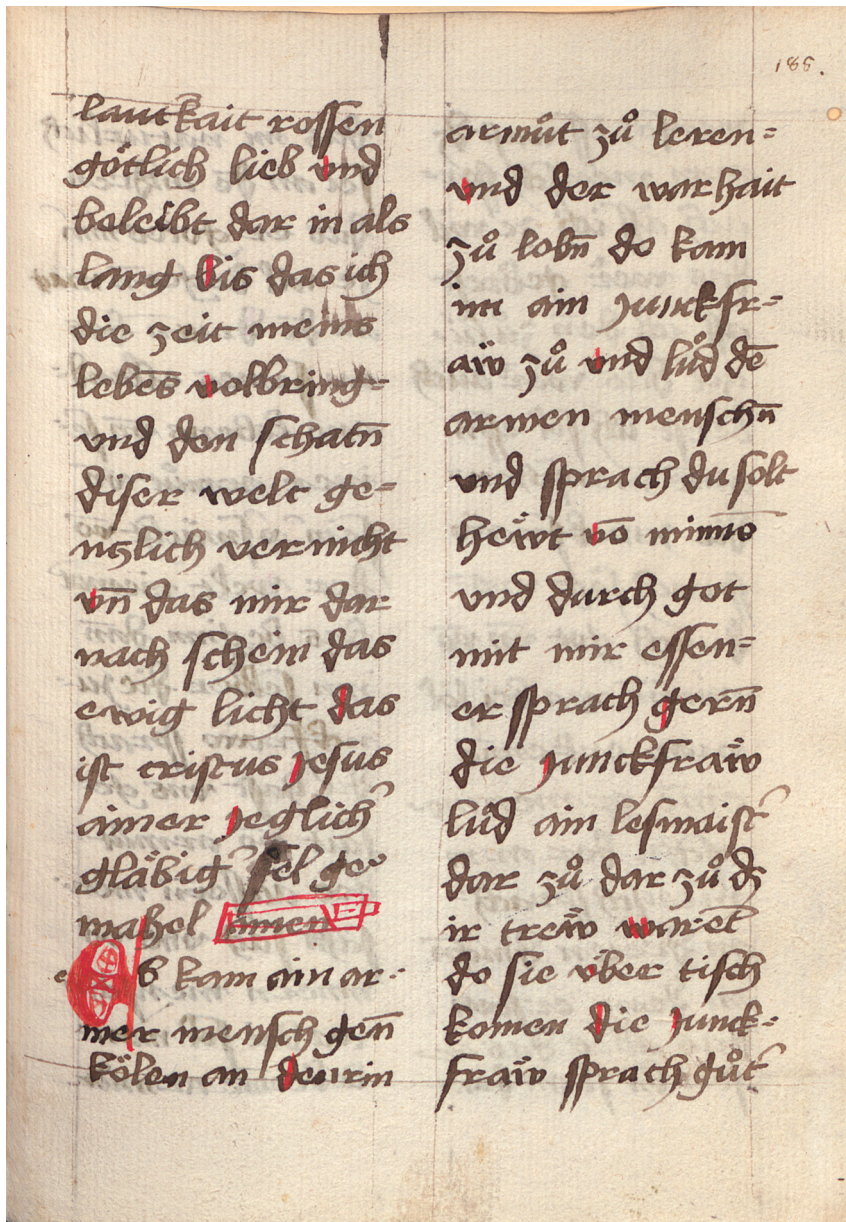 185.
lautkait rossen
götlich lieb vnd
beleibt dar in als
lang bis das ich
die zeit meins
lebēs volbring=
vnd den schatn̄
diser welt ge=
nczlich vernicht
vn̄ das mir dar
nach schein das
ewig licht das
ist cristus Jesus
ainer Jeglich᷑
gläbig᷑ sel ge=
mahel amen
Es kam ain ar=
mer mensch gen̄
kölen an den rin
armůt zů leren=
vnd der warhait
zů lobn̄ do kam
im ain Junckfr=
aẅ zů vnd lůd dē
armen menschn̄
vnd sprach du solt
heẅt vō minnē
vnd durch got
mit mir essen=
er sprach gern̄
die Junckfraẅ
lůd ain lesmaist᷑
dar zů dar zů dz
ir treẅ waret᷑
do sie v̈ber tisch
komen die Junck=
fraẅ sprach gůt᷑